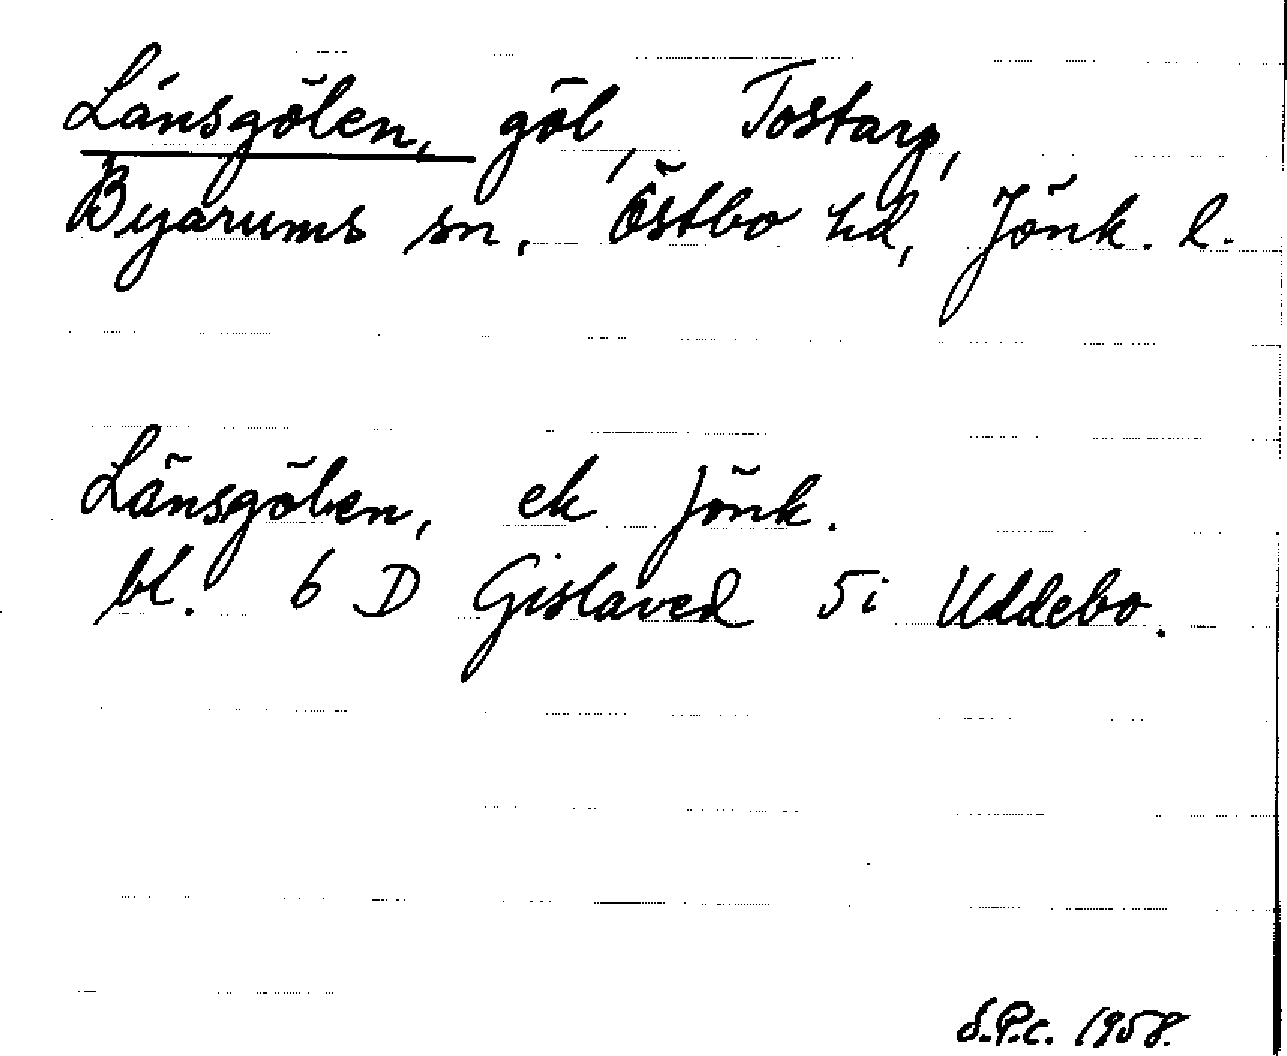 Länsgölen, göl, Tostarp,
Byarums sn, Östbo hd, Jönk. l.
Länsgölen, ek Jönk.
bl. 6 D Gislaved 5i Uddebo.
S.P.C. 1958.